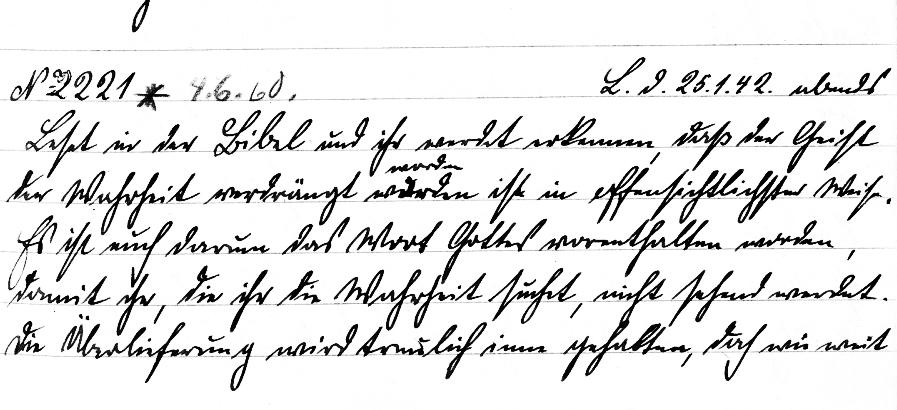 No 2221 * 4.6.60. L. d. 25.1.42. abends
Leset in der Bibel und ihr werdet erkennen, daß der Geist
worden
der Wahrheit verdrängt worden ist in offensichtlichster Weise.
Es ist euch darum das Wort Gottes vorenthalten worden,
damit ihr, die ihr die Wahrheit suchet, nicht sehend werdet.
Die Überlieferung wird treulich inne gehalten, doch wie weit